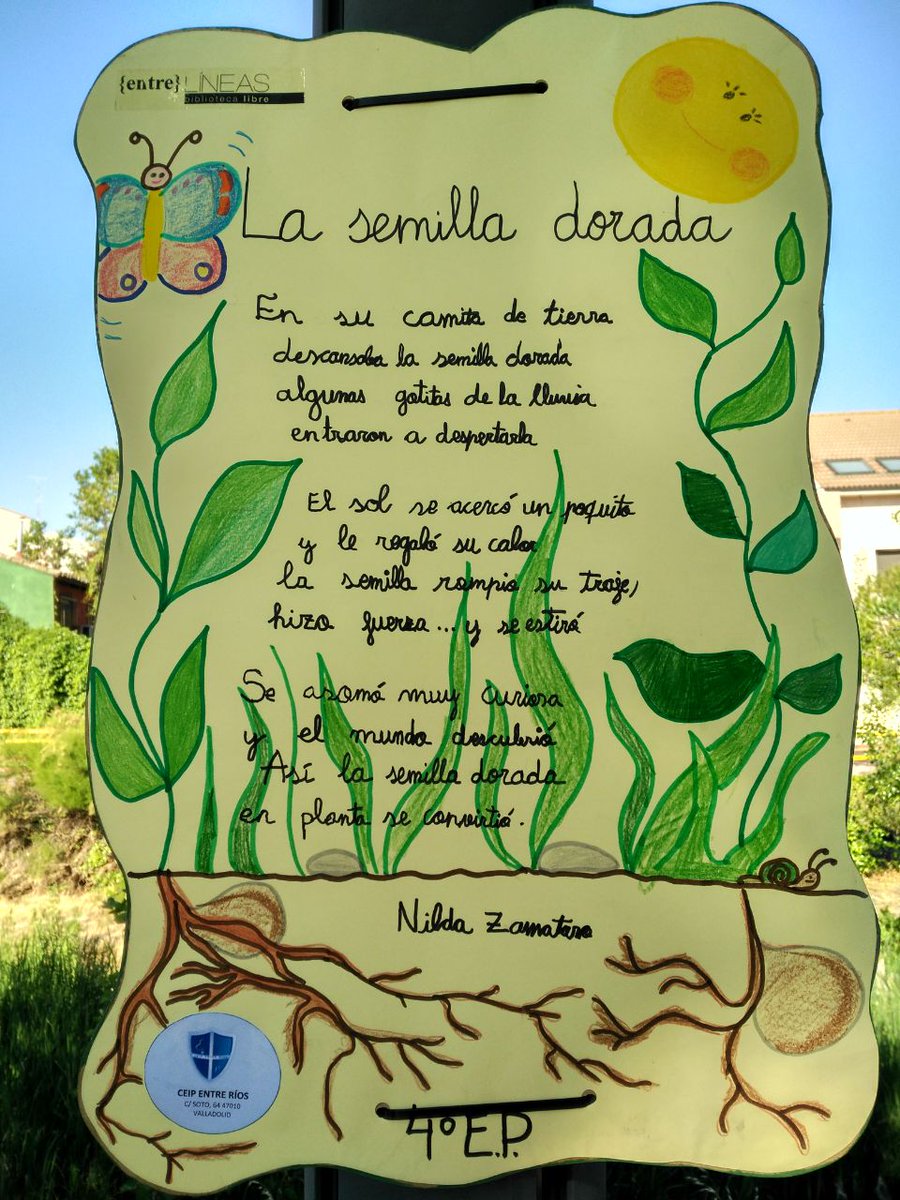 {entre}LÍNEAS
biblioteca libre
La semilla dorada
En su camita de tierra
descansaba la semilla dorada
algunas gotitas de la lluvia
entraron a despertarla
El sol se acercó un poquito
y le regaló su calor
la semilla rompio su traje,
hizo fuerza... y se estiró
Se asomó muy curiosa
y el mundo descubrió
Así la semilla dorada
en planta se convirtió.
Nilda Zamataro
CEIP ENTRE RÍOS
C/ SOTO, 64 47010
VALLADOLID
4º E.P.